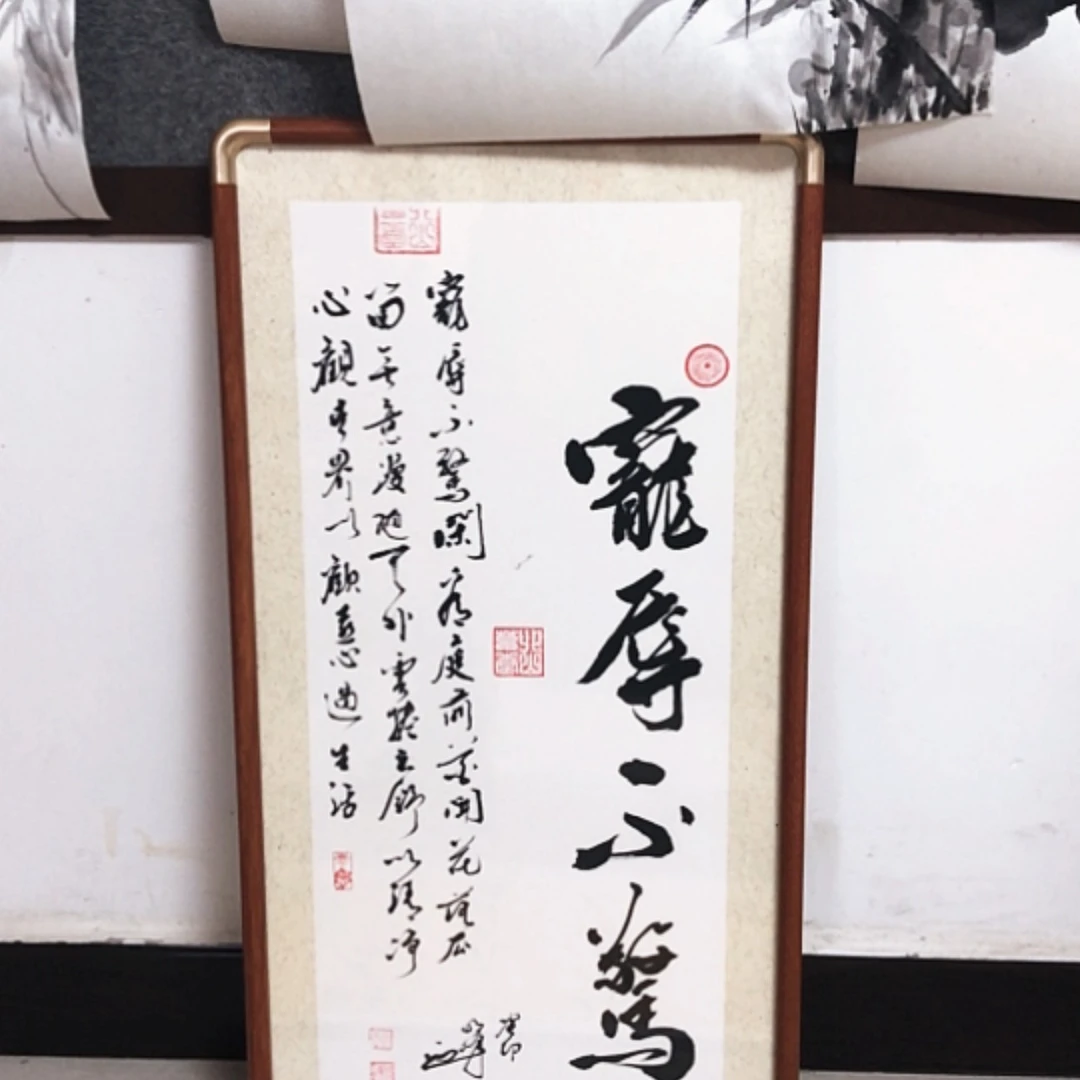 寵辱不驚
寵辱不驚閑看庭前花開花落去
留無意漫隨天外雲捲雲舒以清淨
心觀世界以歡喜心過生活
癸卯